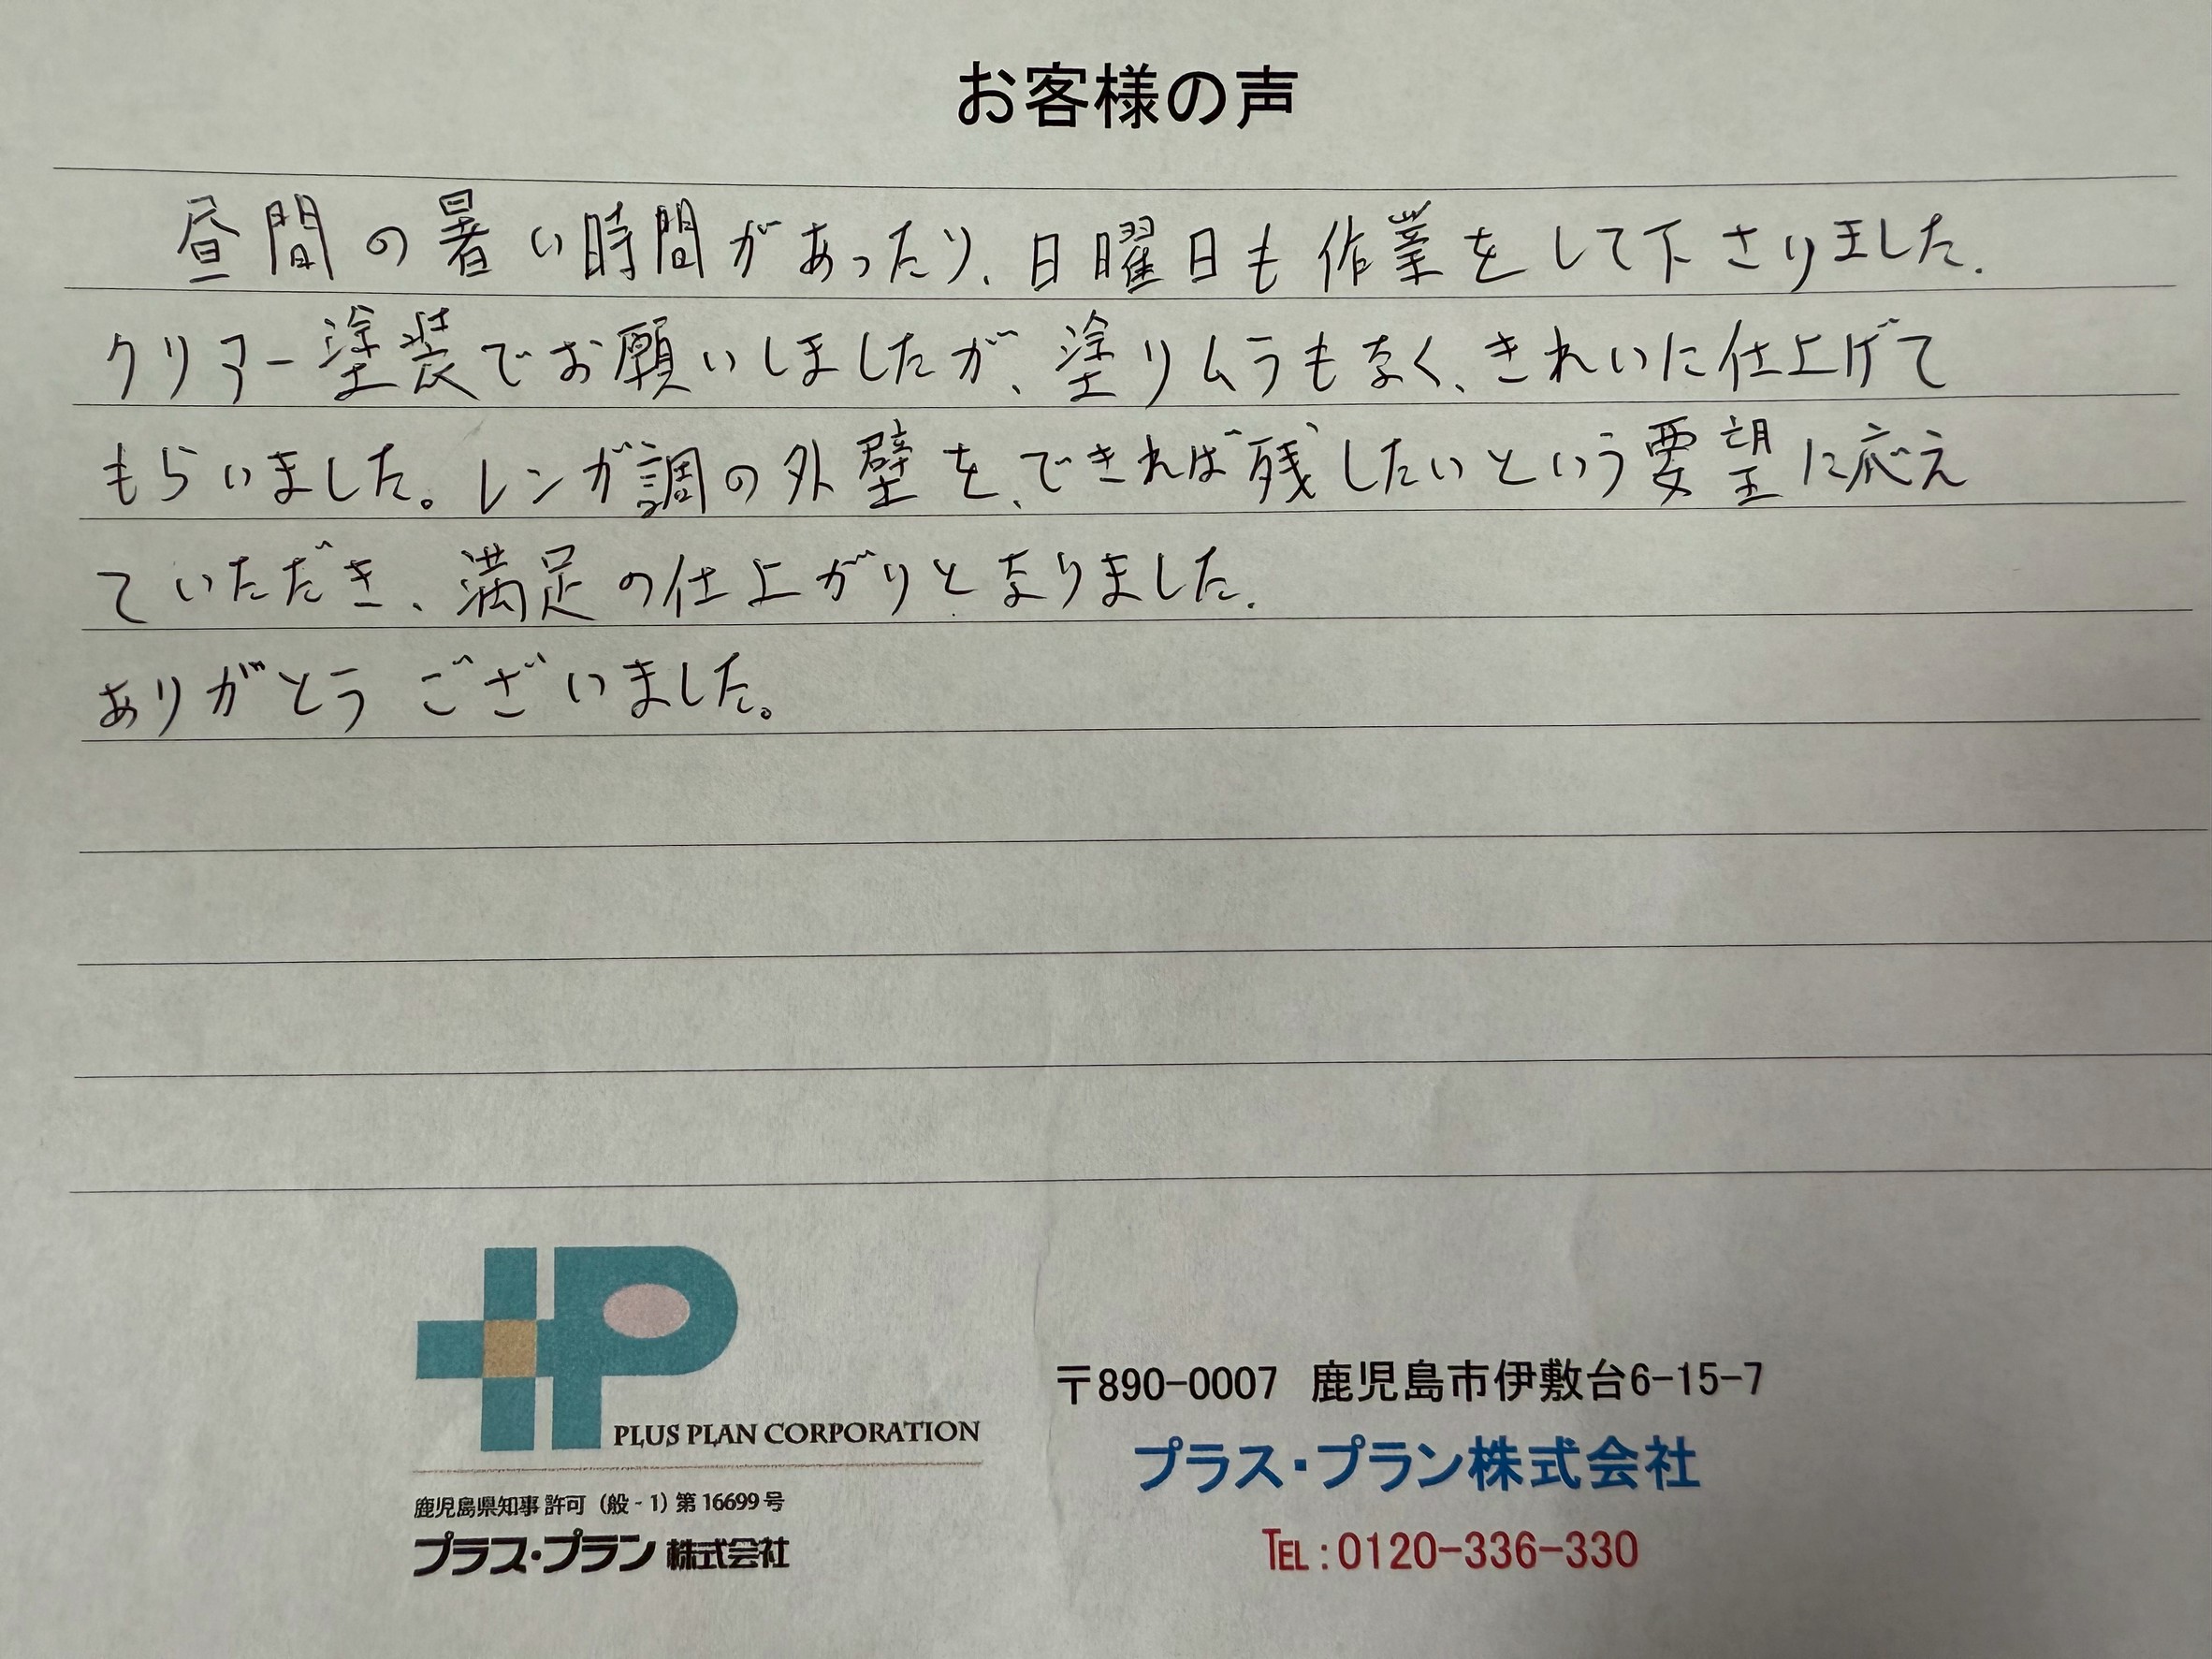 お客様の声
昼間の暑い時間があったり、日曜日も作業をして下さりました.
クリアー塗装でお願いしましたが、塗りムラもなく、きれいに仕上げて
もらいました。レンガ調の外壁を、できれば残したいという要望に応え
ていただき、満足の仕上がりとなりました.
ありがとうございました。
PLUS PLAN CORPORATION
鹿児島県知事 許可（般 - 1）第 16699 号
プラス・プラン 株式会社
〒890-0007 鹿児島市伊敷台6-15-7
プラス・プラン株式会社
TEL:0120-336-330